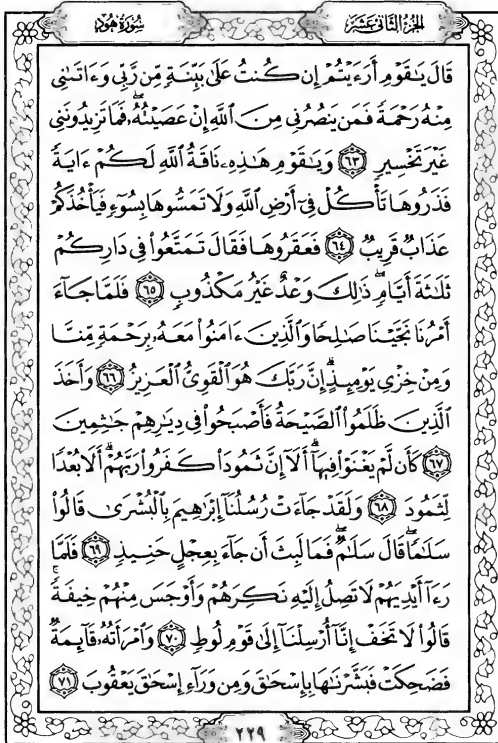 الجزء الثاني عشر
سورة هود
قَالَ يَٰقَوْمِ أَرَءَيْتُمْ إِن كُنتُ عَلَىٰ بَيِّنَةٍ مِّن رَّبِّى وَءَاتَىٰنِى
مِنْهُ رَحْمَةً فَمَن يَنصُرُنِى مِنَ ٱللَّهِ إِنْ عَصَيْتُهُۥۖ فَمَا تَزِيدُونَنِى
غَيْرَ تَخْسِيرٍ ٦٣ وَيَٰقَوْمِ هَٰذِهِۦ نَاقَةُ ٱللَّهِ لَكُمْ ءَايَةً
فَذَرُوهَا تَأْكُلْ فِىٓ أَرْضِ ٱللَّهِ وَلَا تَمَسُّوهَا بِسُوٓءٍ فَيَأْخُذَكُمْ
عَذَابٌ قَرِيبٌ ٦٤ فَعَقَرُوهَا فَقَالَ تَمَتَّعُوا۟ فِى دَارِكُمْ
ثَلَٰثَةَ أَيَّامٍۖ ذَٰلِكَ وَعْدٌ غَيْرُ مَكْذُوبٍ ٦٥ فَلَمَّا جَآءَ
أَمْرُنَا نَجَّيْنَا صَٰلِحًا وَٱلَّذِينَ ءَامَنُوا۟ مَعَهُۥ بِرَحْمَةٍ مِّنَّا
وَمِنْ خِزْىِ يَوْمِئِذٍۗ إِنَّ رَبَّكَ هُوَ ٱلْقَوِىُّ ٱلْعَزِيزُ ٦٦ وَأَخَذَ
ٱلَّذِينَ ظَلَمُوا۟ ٱلصَّيْحَةُ فَأَصْبَحُوا۟ فِى دِيَٰرِهِمْ جَٰثِمِينَ
٦٧ كَأَن لَّمْ يَغْنَوْا۟ فِيهَآۗ أَلَآ إِنَّ ثَمُودَا۟ كَفَرُوا۟ رَبَّهُمْۗ أَلَا بُعْدًا
لِّثَمُودَ ٦٨ وَلَقَدْ جَآءَتْ رُسُلُنَآ إِبْرَٰهِيمَ بِٱلْبُشْرَىٰ قَالُوا۟
سَلَٰمًاۖ قَالَ سَلَٰمٌۖ فَمَا لَبِثَ أَن جَآءَ بِعِجْلٍ حَنِيذٍ ٦٩ فَلَمَّا
رَءَآ أَيْدِيَهُمْ لَا تَصِلُ إِلَيْهِ نَكِرَهُمْ وَأَوْجَسَ مِنْهُمْ خِيفَةًۚ
قَالُوا۟ لَا تَخَفْ إِنَّآ أُرْسِلْنَآ إِلَىٰ قَوْمِ لُوطٍ ٧٠ وَٱمْرَأَتُهُۥ قَآئِمَةٌ
فَضَحِكَتْ فَبَشَّرْنَٰهَا بِإِسْحَٰقَ وَمِن وَرَآءِ إِسْحَٰقَ يَعْقُوبَ ٧١
٢٢٩